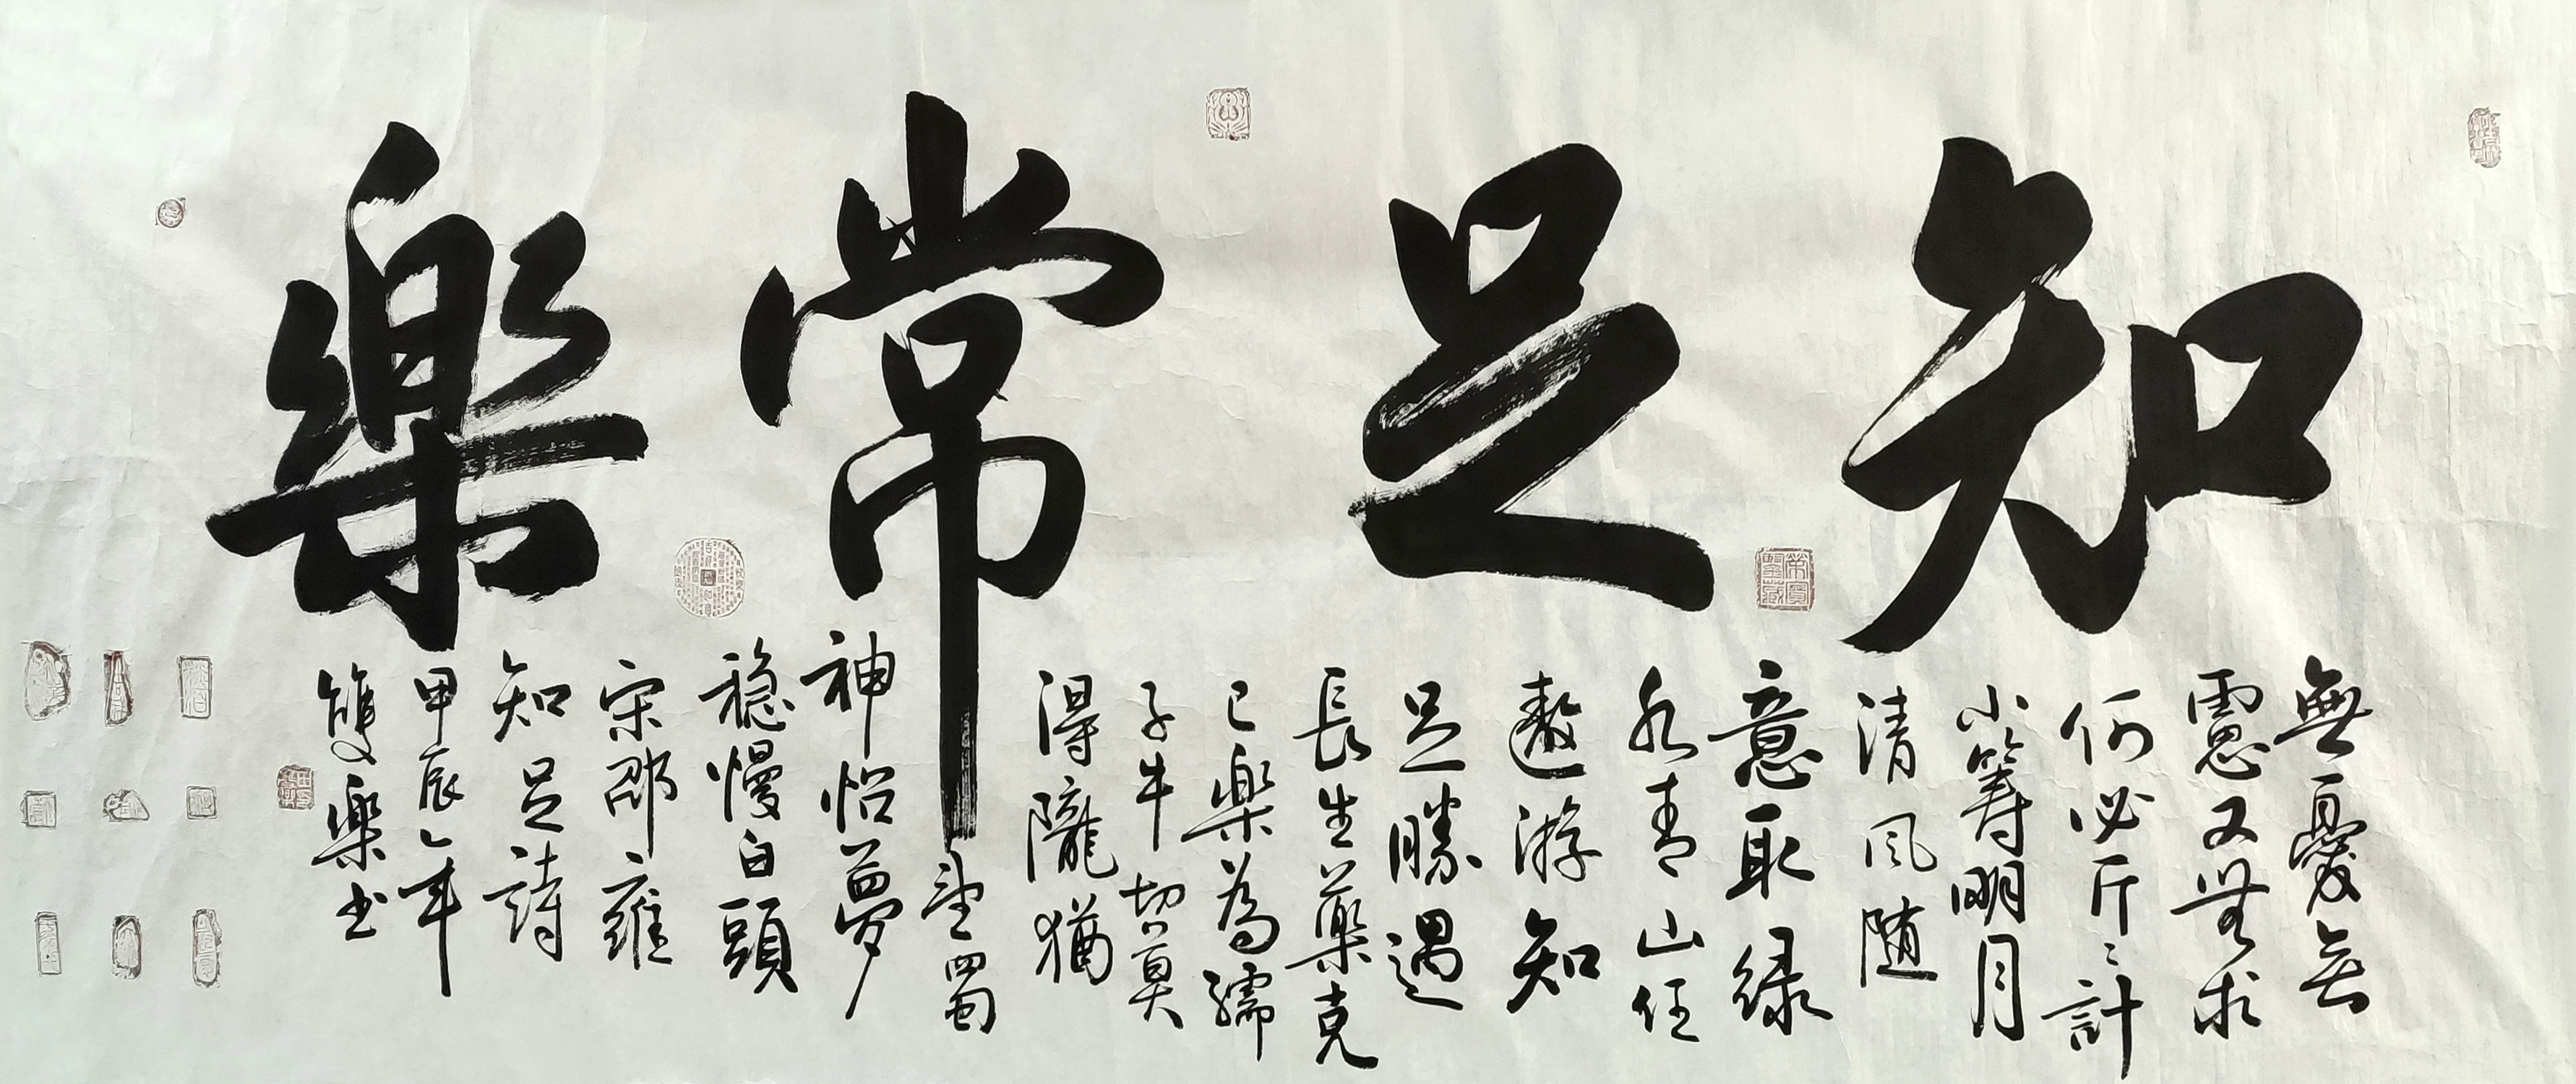 知足常樂
無憂无
慮又無求
何必斤〻計
小籌明月
清風随
意取緑
水青山任
遨游知
足勝遇
長生藥克
己樂為孺
子牛切莫
得隴猶
望蜀
神怡夢
稳慢白頭
宋邵雍
知足詩
甲辰年
雙樂书